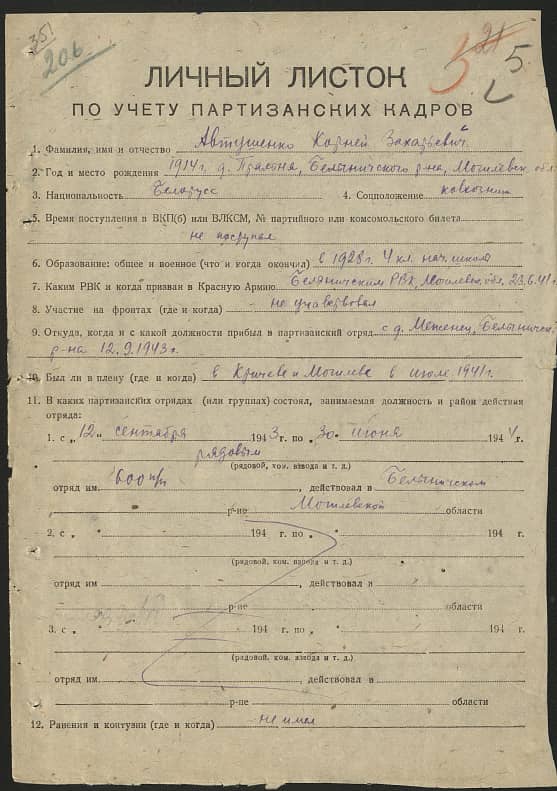 35
206
21
5
5
ЛИЧНЫЙ ЛИСТОК
ПО УЧЕТУ ПАРТИЗАНСКИХ КАДРОВ
1. Фамилия, имя и отчество Автушенко Корней Захарьевич
2. Год и место рождения 1914 г. д. Прялтня, Белыничского р-на, Могилевск. обл.
3. Национальность Белорусс 4. Соцположение колхозник
5. Время поступления в ВКП(б) или ВЛКСМ, № партийного или комсомольского билета
не поступал
6. Образование: общее и военное (что и когда окончил) в 1928 г. 4 кл. нач. школ
7. Каким РВК и когда призван в Красную Армию Белыничским РВК, Могилевск. обл. 23.6.41 г.
8. Участие на фронтах (где и когда) не участвовал
9. Откуда, когда и с какой должности прибыл в партизанский отряд с д. Метенец, Белыническ.
р-на 12.9.1943 г.
10. Был ли в плену (где и когда) в Кричеве и Могилеве в июле 1941 г.
11. В каких партизанских отрядах (или группах) состоял, занимаемая должность и район действия
отряда:
1. с „12" сентября 1943 г. по „30" июня 1944 г.
рядовым
(рядовой, ком. взвода и т. д.)
отряд им. 600 п/п, действовал в Белыничском
р-не Могилевской области
2. с „ " 194 г. по „ " 194 г.
(рядовой, ком. взвода и т. д.)
отряд им , действовал в
р-не области
3. с „ " 194 г. по „ " 194 г.
(рядовой, ком. взвода и т. д.)
отряд им. , действовал в
р-не области
12. Ранения и контузии (где и когда) не имел